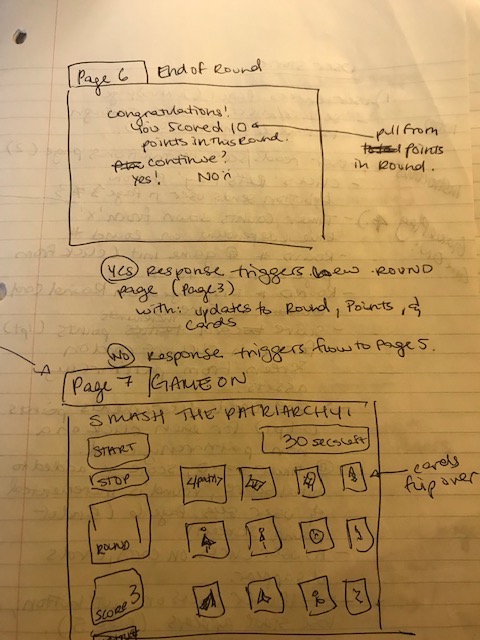 Page 6 End of Round
Congratulations!
You scored 10
points in this round.
continue?
Yes! No :(
pull from
points
in Round.
YES Response triggers new ROUND
page (Page 3)
with: updates to Round, Points, &
cards
NO Response triggers flow to Page 5.
Page 7 GAME ON
SMASH THE PATRIARCHY!
START
30 secs left
STOP
</path>
cards
flip over
1
ROUND
3
SCORE